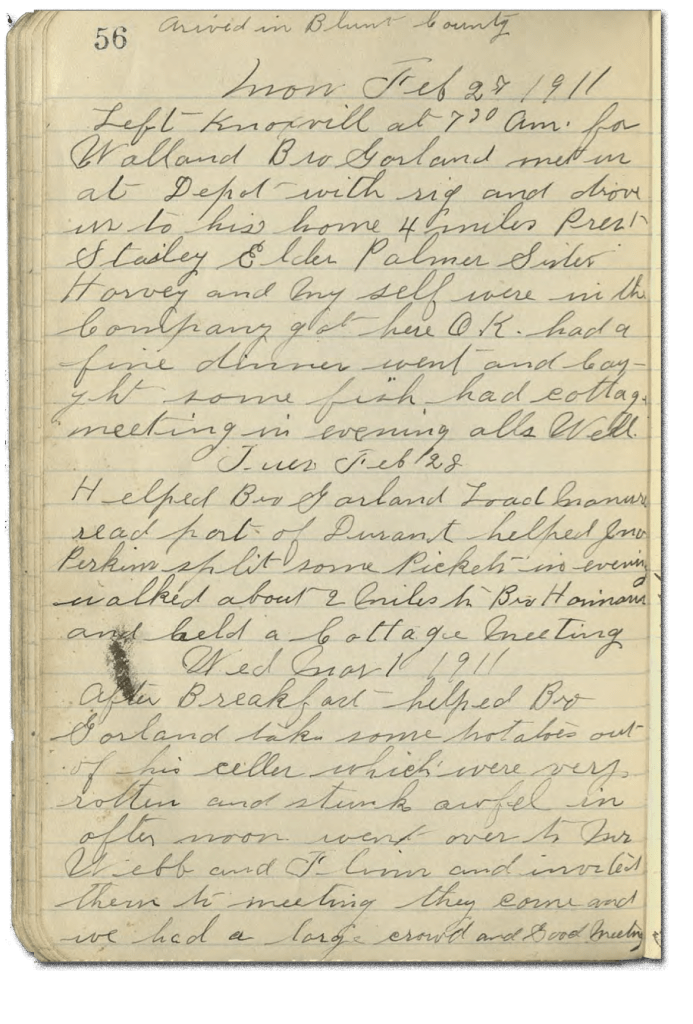 56 Arived in Blunt County
Mon Feb 27 1911
Left Knoxvill at 7 30 Am. for
Walland Bro Gorland met us
at Depot with rig and drove
us to his home 4 miles Prest
Stailey Elder Palmer Sister
Horvey and my self were in the
Company got here O.K. had a
fine dinner went and Cau-
ght some fish had cottag
meeting in evening alls Well.
Tues Feb 28
Helped Bro Garland Load manure
read part of Durant helped Jno
Perkins split some Pickets in evening
walked about 2 miles to Bro
and held a Cottage Meeting
Wed Mar 1 1911
After Breakfast helped Bro
Gorland take some potatoes out
of his celler which were very
rotten and stunk awfel in
after noon went over to Mr
Webb and Flinn and invited
them to meeting they come and
we had a large crowd and Good Meeting